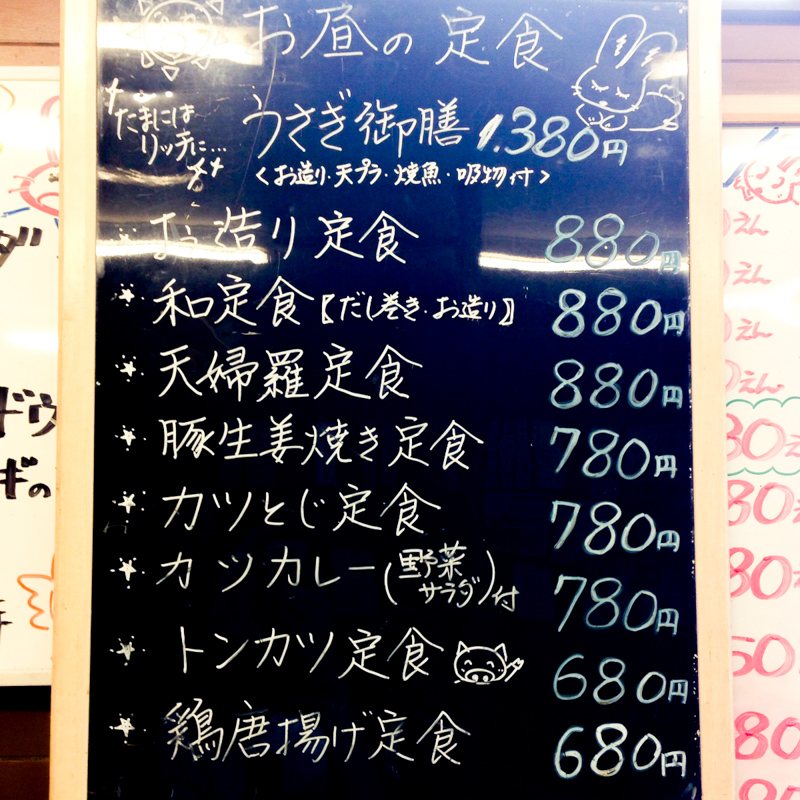 お昼の定食
たまには
リッチに…
うさぎ御膳 1.380円
<お造り・天プラ・焼魚・吸物付>
お造り定食 880円
和定食〖だし巻き・お造り〗 880円
天婦羅定食 880円
豚生姜焼き定食 780円
カツとじ定食 780円
カツカレー(野菜サラダ)付 780円
トンカツ定食 680円
鶏唐揚げ定食 680円
えん
えん
えん
えん